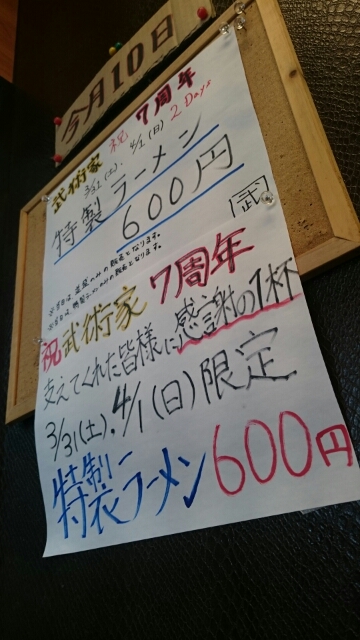 今月10日
祝 7周年
武術家 3/31(土).4/1(日) 2 Days
特製ラーメン
600円
武
祝 武術家 7周年
支えてくれた皆様に感謝の1杯
3/31(土).4/1(日)限定
特製ラーメン600円